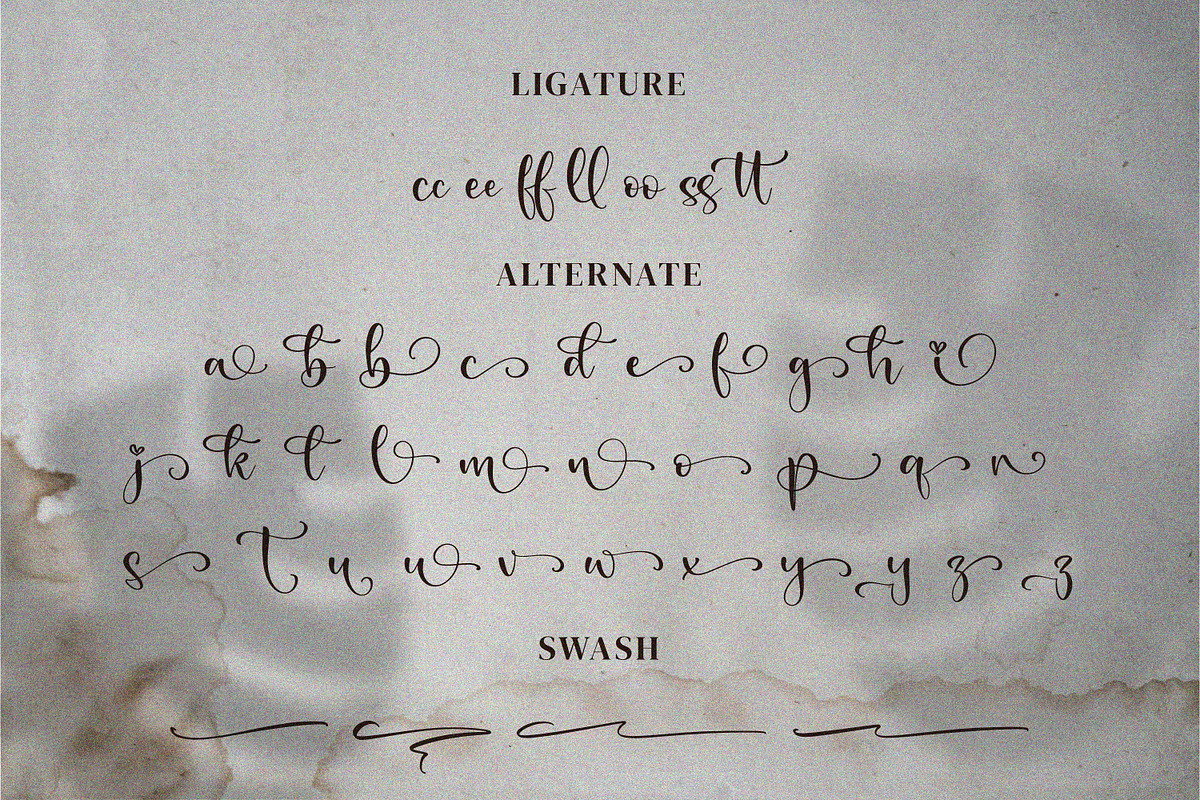 LIGATURE
cc ee ff ll oo ss tt
ALTERNATE
a b b c d e f g h i
j k t l m n o p q r
s t u u v w x y y z z
SWASH